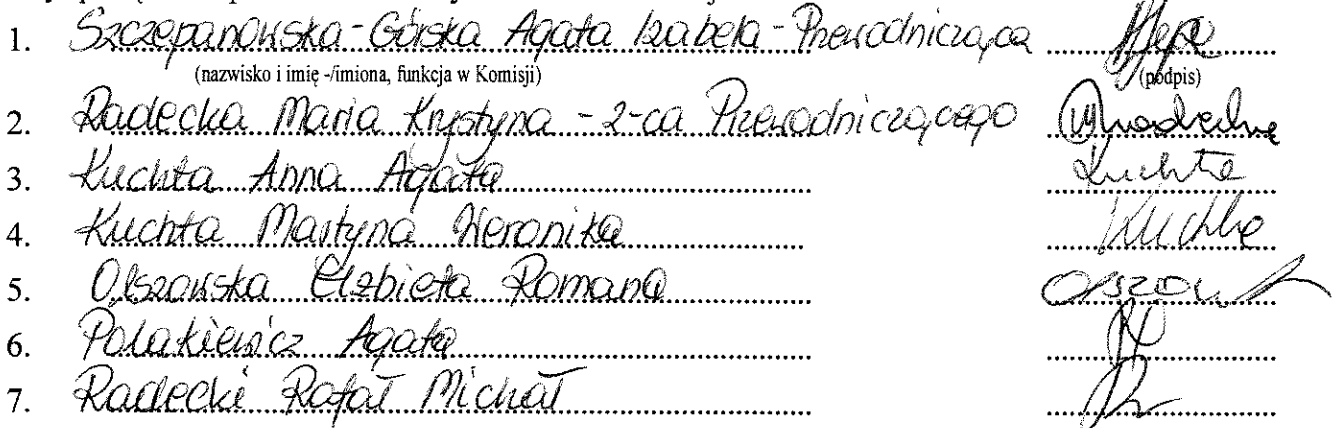 1. Szczepanowska-Górska Agata Izabela - Przewodnicząca
(nazwisko i imię -/imiona, funkcja w Komisji) (podpis)
2. Radecka Maria Krystyna - Z-ca Przewodniczącego
3. Kuchta Anna Agata Kuchta
4. Kuchta Martyna Weronika Kuchta
5. Olszowska Elżbieta Romana
6. Polakiewicz Agata
7. Radecki Rafał Michał